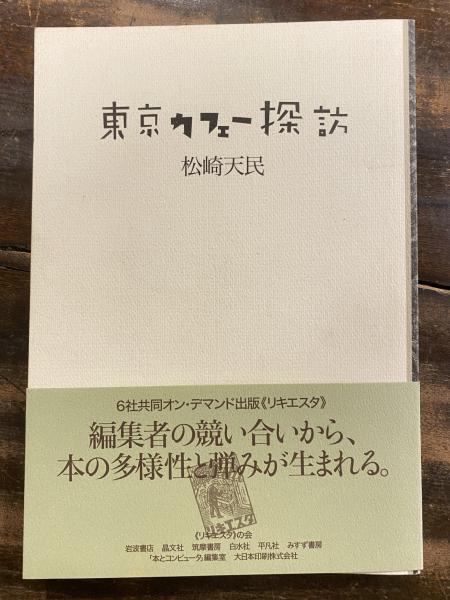 東京カフェー探訪
松崎天民
6社共同オン・デマンド出版《リキエスタ》
編集者の競い合いから、
本の多様性と弾みが生まれる。
リキエスタ
《リキエスタ》の会
岩波書店 晶文社 筑摩書房 白水社 平凡社 みすず書房
「本とコンピュータ」編集室 大日本印刷株式会社